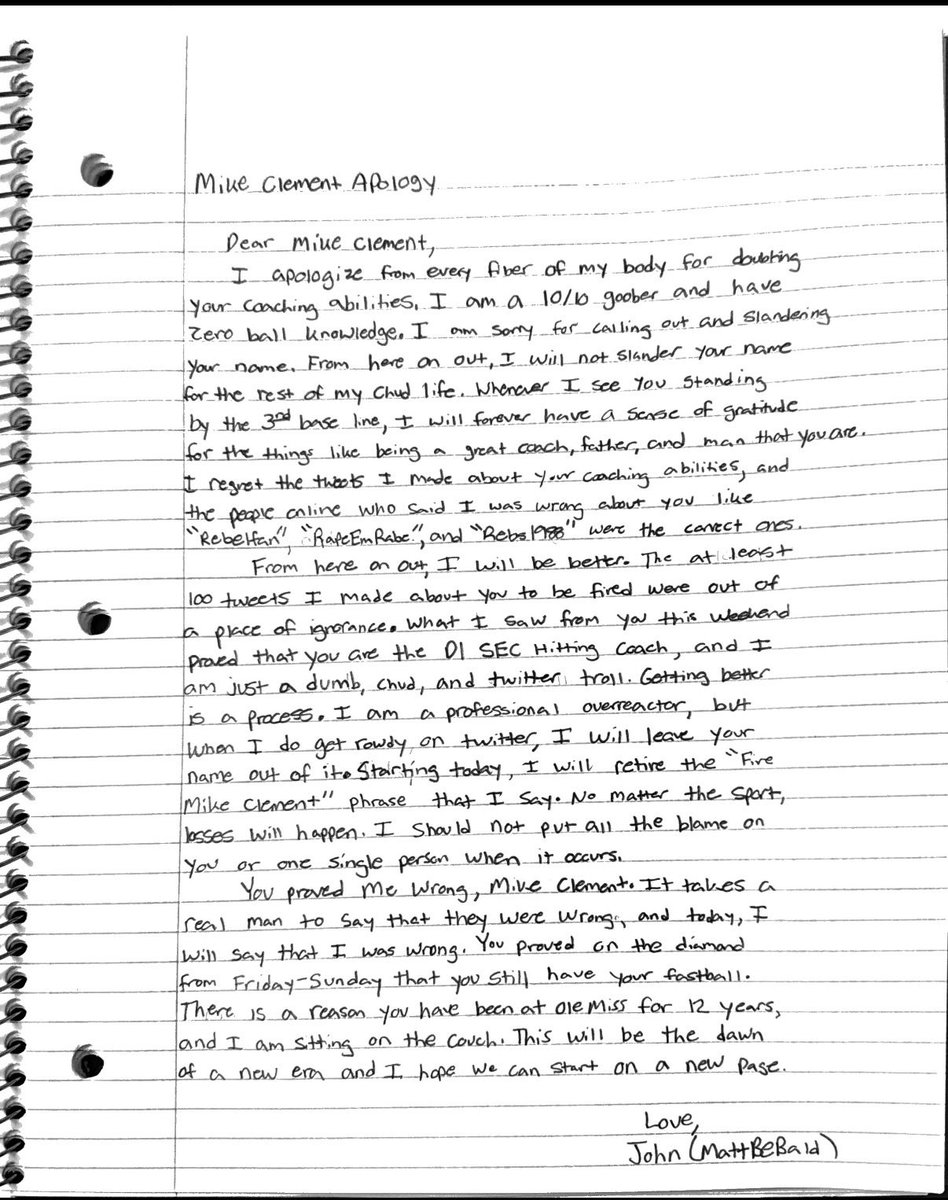 Mike Clement Apology
Dear Mike Clement,
I apologize from every fiber of my body for doubting
your coaching abilities. I am a 10/10 goober and have
zero ball knowledge. I am sorry for calling out and slandering
your name. From here on out, I will not slander your name
for the rest of my chud life. Whenever I see you standing
by the 3rd base line, I will forever have a sense of gratitude
for the things like being a great coach, father, and man that you are.
I regret the tweets I made about your coaching abilities, and
the people online who said I was wrong about you like
"Rebelfan", and "Rebs1988" were the correct ones.
From here on out, I will be better. The at least
100 tweets I made about you to be fired were out of
a place of ignorance. What I saw from you this weekend
proved that you are the D1 SEC Hitting Coach, and I
am just a dumb, chud, and twitter troll. Getting better
is a process. I am a professional overreactor, but
when I do get rowdy on twitter, I will leave your
name out of it. Starting today, I will retire the "Fire
Mike Clement" phrase that I say. No matter the sport,
losses will happen. I should not put all the blame on
you or one single person when it occurs.
You proved me wrong, Mike Clement. It takes a
real man to say that they were wrong, and today, I
will say that I was wrong. You proved on the diamond
from Friday-Sunday that you still have your fastball.
There is a reason you have been at Ole Miss for 12 years,
and I am sitting on the couch. This will be the dawn
of a new era and I hope we can start on a new page.
Love,
John (MattBeBald)